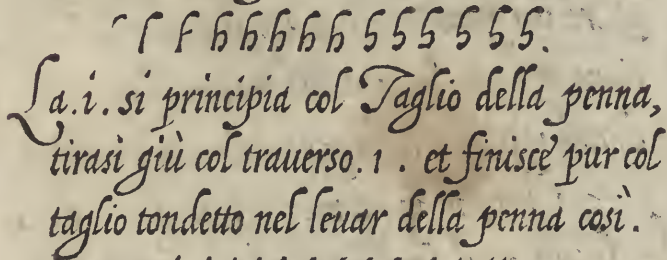 ſ ſ F h h h h h h h h h h h.
La.i. si principia col Taglio della penna,
tirasi giù col trauerso. 1 . et finisce pur col
taglio tondetto nel leuar della penna così.